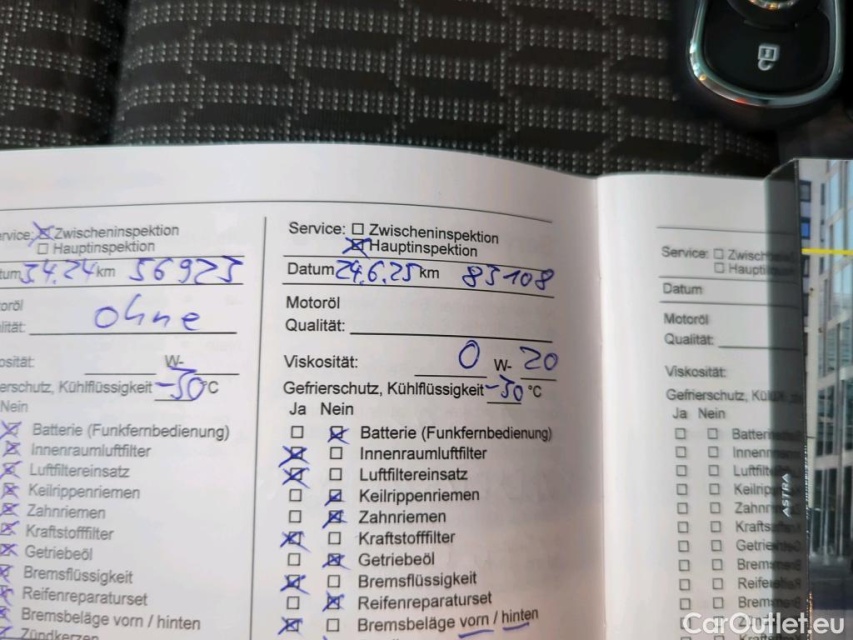 Zwischeninspektion
Hauptinspektion
km 56925
ohne
W-
Gefrierschutz, Kühlflüssigkeit -30 °C
Nein
Batterie (Funkfernbedienung)
Innenraumluftfilter
Luftfiltereinsatz
Keilrippenriemen
Zahnriemen
Kraftstofffilter
Getriebeöl
Bremsflüssigkeit
Reifenreparaturset
Bremsbeläge vorn / hinten
Zündkerzen
Service: Zwischeninspektion
Hauptinspektion
Datum 24.6.25 km 83108
Motoröl
Qualität:
Viskosität: 0 W- 20
Gefrierschutz, Kühlflüssigkeit -30 °C
Ja Nein
Batterie (Funkfernbedienung)
Innenraumluftfilter
Luftfiltereinsatz
Keilrippenriemen
Zahnriemen
Kraftstofffilter
Getriebeöl
Bremsflüssigkeit
Reifenreparaturset
Bremsbeläge vorn / hinten
Service:
Datum
Motoröl
Qualität:
Viskosität:
Gefrierschutz,
Ja Nein
ASTRA
CarOutlet.eu